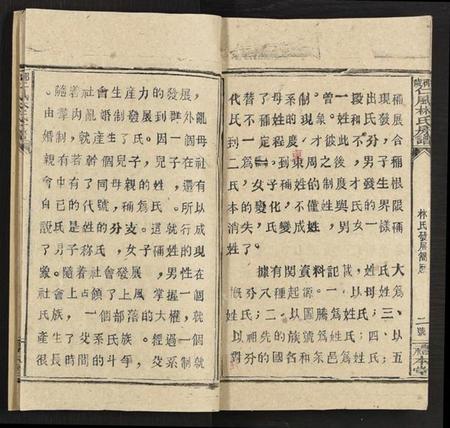 。隨着社會生產力的發展,
由羣内亂婚制發展到羣外亂
婚制,就產生了氏。因一個母
親有若幹個兒子,兒子在社
會中有了同母親的姓,還有
自己的代號,稱爲氏。所以
説氏是姓的分支。這就行成
了男子稱氏,女子稱姓的現
象。隨着社會發展,男性在
社會上占領了上風,掌握一個
氏族,一個部落的大權,就
產生了父系氏族。經過一個
很長時間的斗争,父系制就
代替了母系制。曾一段出現稱
氏不
到東周之后,男子
合二爲一,女子
本的變化,不僅姓
消失,氏變成姓,男女一樣稱
姓了。
據有関資料記載,姓氏大
概分八種起源。一、以母姓爲
姓氏;二、以圖騰爲姓氏;三、
以祖先的族號爲姓氏;四、以
的國名和采邑爲姓氏;五
風林氏房譜
林氏發展簡歷
二號
本堂